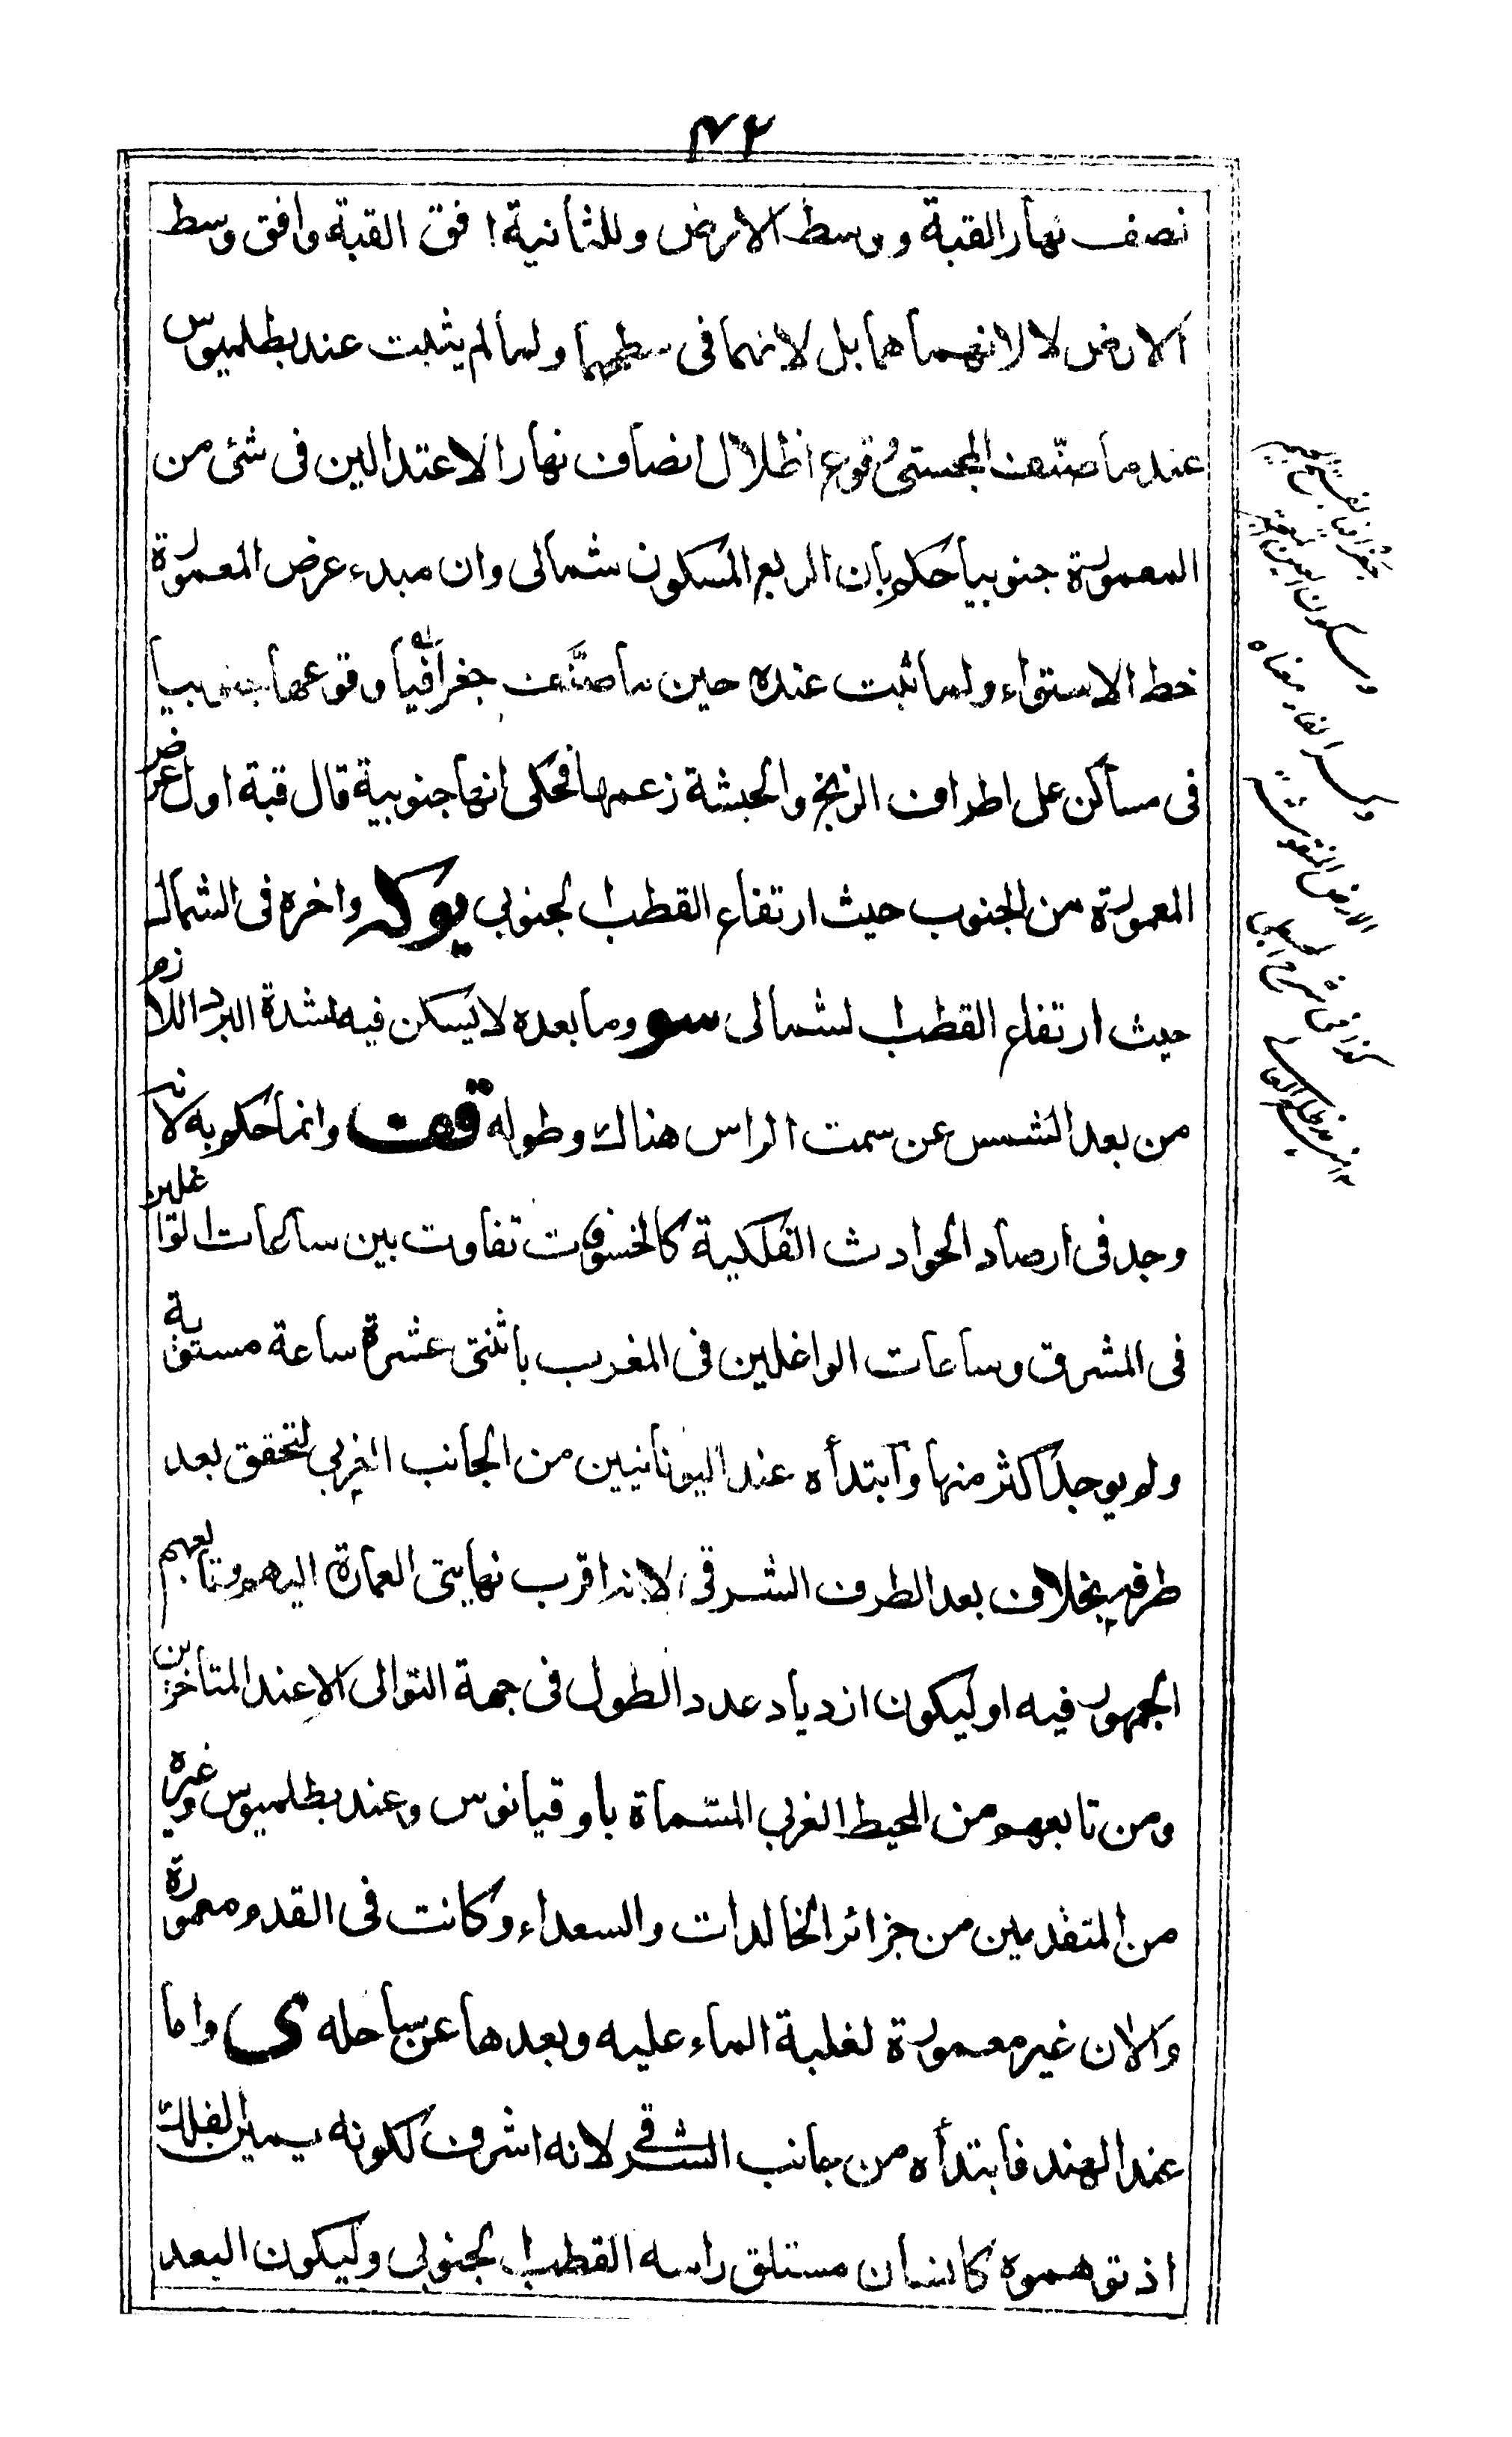 ٤٢
نصف نهار القبة ووسط الارض وللثانية افق القبة وافق وسط
الارض لا لانهما هما بل لانهما فى سطحهما ولما لم يثبت عند بطلميوس
عند ما صنّف المجسطى وقوع اظلال انصاف نهار الاعتدالين فى شئ من
المعمورة جنوبيا حكم بان الربع المسكون شمالى وان مبدء عرض المعمورة
خط الاستواء ولما ثبت عنده حين ما صنَّف جغرافيا وقوعها جنوبيا
فى مساكن على اطراف الزنج والحبشة زعمها فحكى انها جنوبية قال قبة اول عرض
المعمورة من الجنوب حيث ارتفاع القطب الجنوبى يوكه واخره فى الشمال
حيث ارتفاع القطب الشمالى سو وما بعده لا يسكن فيه لشدة البرد اللازم
من بعد الشمس عن سمت الراس هناك وطوله قف وانما حكم به لانه
وجد فى ارصاد الحوادث الفلكية كالخسوفات تفاوت بين ساعات الواغلين
فى المشرق وساعات الواغلين فى المغرب باثنتى عشرة ساعة مستوية
ولم يوجد اكثر منها وابتدأه عند اليونانيين من الجانب الغربى لتحقق بعد
طرفه بخلاف بعد الطرف الشرقى لانه اقرب نهايتى العمارة اليهم وتابعهم
الجمهور فيه او ليكون ازدياد عدد الطول فى جهة التوالى الا عند المتاخرين
ومن تابعهم من المحيط الغربى المسّماة باوقيانوس وعند بطلميوس وغيره
من المتقدمين من جزائر الخالدات والسعداء وكانت فى القدم معمورة
والان غير معمورة لغلبة الماء عليه وبعدها عن ساحله ى واما
عند الهند فابتدأه من جانب الشرقى لانه اشرف لكونه يمين الفلك
اذ توهموه كانسان مستلق راسه القطب الجنوبى وليكون البعد